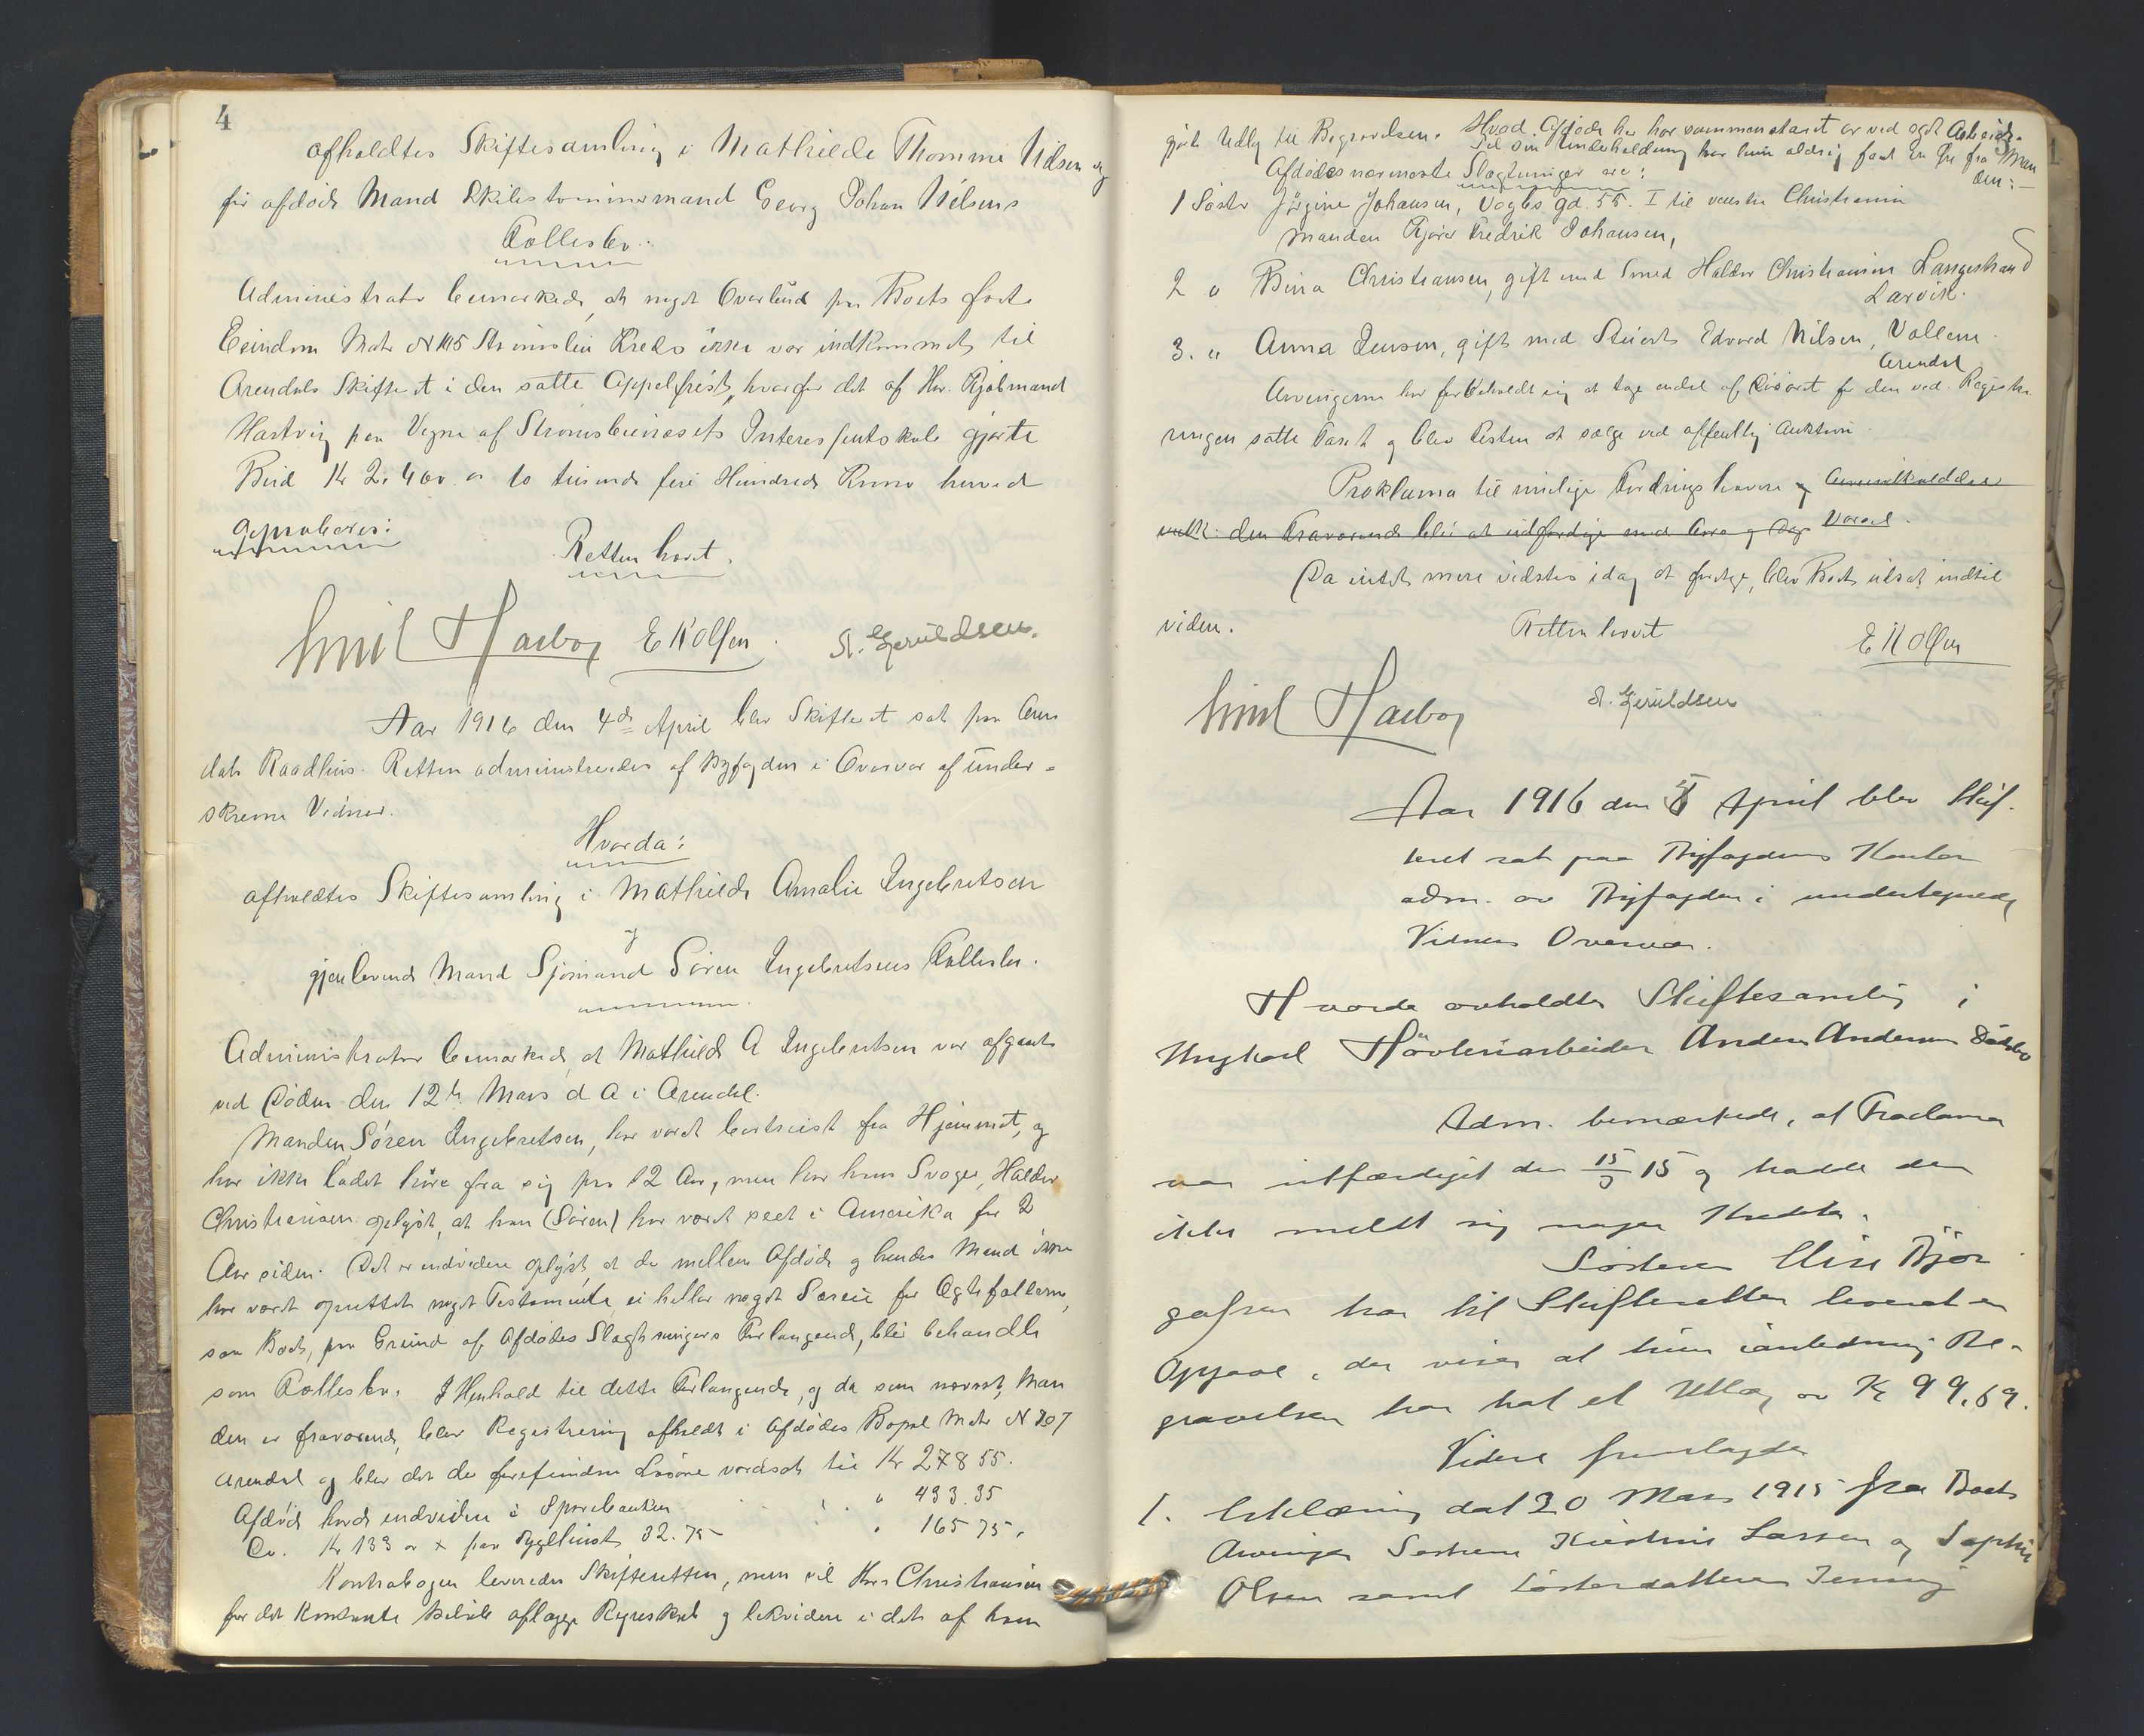 4
afholdtes Skiftesamling i Mathilde Thomine Nilsen og
før afdøde Mand Skibstømmermand Georg Johan Nilsens
Fællesbo.
Administrator bemærkede, at noget Overbud paa Boets faste
Eiendom Matr N 115 Strømsbu Kreds ikke var indkommet til
Arendals Skifteret i den satte Appelfrist, hvorfor det af Hr. Kjøbmand
Hartvig paa Vegne af Strømsbuneæsets Interessentskab gjorte
Bud Kr 2.400. er to tusinde fire Hundrede Kroner herved
approberes:
Retten hævet.
Emil Harboy E K Olsen. A. Geruldsen.
Aar 1916 den 4de April blev Skifteret sat paa Aren
dals Raadhus. Retten administreredes af Byfogden i Overvær af under=
skrevne Vidner.
Hvorda:
afholdtes Skiftesamling i Mathilde Amalie Ingebretsen
og
gjenlevende Mand Sjømand Søren Ingebretsens Fællesbo.
Administrator bemærkede, at Mathilde A Ingebretsen var afgaaet
ved Døden den 12te Mars d A i Arendal.
Manden, Søren Ingebretsen, har været bortreist fra Hjemmet, og
har ikke ladet høre fra sig paa 12 Aar, men har hans Svoger, Haldor
Christiansen oplyst, at han (Søren) har været seet i Amerika for 2
Aar siden. Det er endvidere oplyst, at der mellem Afdøde og hendes Mand ikke
har været oprettet noget Testamente, ei heller noget Særeie for Ægtefællerne,
saa Boet, paa Grund af Afdødes Slægtningers Forlangende, blir behandle
som Fællesbo. I Henhold til dette Forlangende, og da som nævnt, Man
den er fraværende, blev Registrering afholdt i Afdødes Bopæl Matr N 707
Arendal og blev det der forefundne Løsøre værdsat til Kr 278 55.
Afdøde havde endvidere i Sparebanken " 433.35
Do. Kr 133 ar x par Bygslinst 32.75 " 165 75.
Kontrabogen leveredes Skifteretten, men vil Hr. Christiansen
for det Kontante Beløb aflægge Regnskab og likvidere i det af ham
gjorte Udlæg til Begravelsen. Hvad Afdøde her har sammensparet er ved eget Arbeide.
Til sin Underholdning har hun aldrig faat en Øre fra Man
den:-
Afdødes nærmeste Slægtninger er:
1 Søster Jørgine Johansen, Vogts gd. 55. I til venstre Christiania
Manden Kjører Fredrik Johansen,
2 " Bina Christiansen, gift med Smed Haldor Christiansen Langestrand
Larvik.
3. " Anna Jensen, gift med Stuert Edvard Nilsen, Vollene
Arendal
Arvingerne har forbeholdt sig at tage endel af Løsøret for den ved Registre
ringen satte Taxt og blev Resten at sælge ved offentlig Auktion.
Proklama til mulige Fordringshavere og
den Fraværende blir at udfærdige med Aars og Dags Varsel.
Da intet mere vidstes idag at foretage, blev Boet udsat indtil
videre.
Retten hævet
E K Olsen
Emil Harboy
A. Geruldsen
Aar 1916 den 5 April blev Skif-
teret sat paa Byfogdens Kontor
adm. av Byfogden i undertegnede
Vidners Overvær.
Hvorda avholdtes Skiftesamling i
Ungkarl Høvleriarbeider Anders Andersens Dødsbo
Adm. bemærkede, at Proclama
var utfærdiget den 15/3 15 og hadde der
ikke meldt sig nogen Kreditor.
Søsteren Elise Bjør
gassen har til Skifteretten leveret en
Opgave, der viser at hun i anledning Be-
gravelsen har hat et Utlæg av Kr 99.69.
Videre fremlagdes
1. Erklæring dat 20 Mars 1915 fra Boets
Arvinger Søstrene Kirstine Larsen og Sophie
Olsen samt Søsterdatteren Jenny